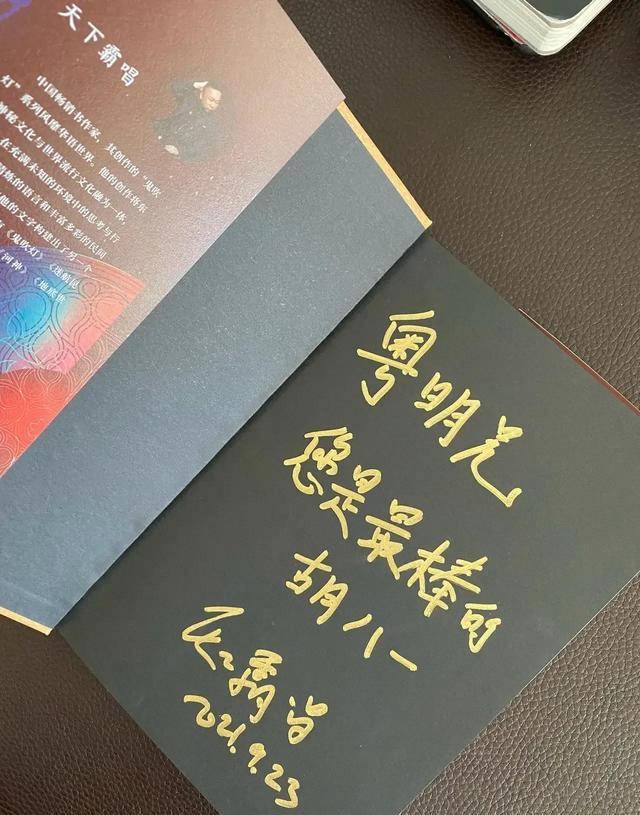 天下霸唱
中国畅销书作家，其创作的“鬼吹
灯”系列风靡华语世界。他的创作将东
神秘文化与世界流行文化融为一体，
在充满未知的环境中的思考与行
精炼的语言和丰富多彩的民间
他的文字构建出了另一个
《鬼吹灯》《迷航昆
河神》《地底世
粤明兄
您是最棒的
胡八一
天下霸唱
2021.9.23